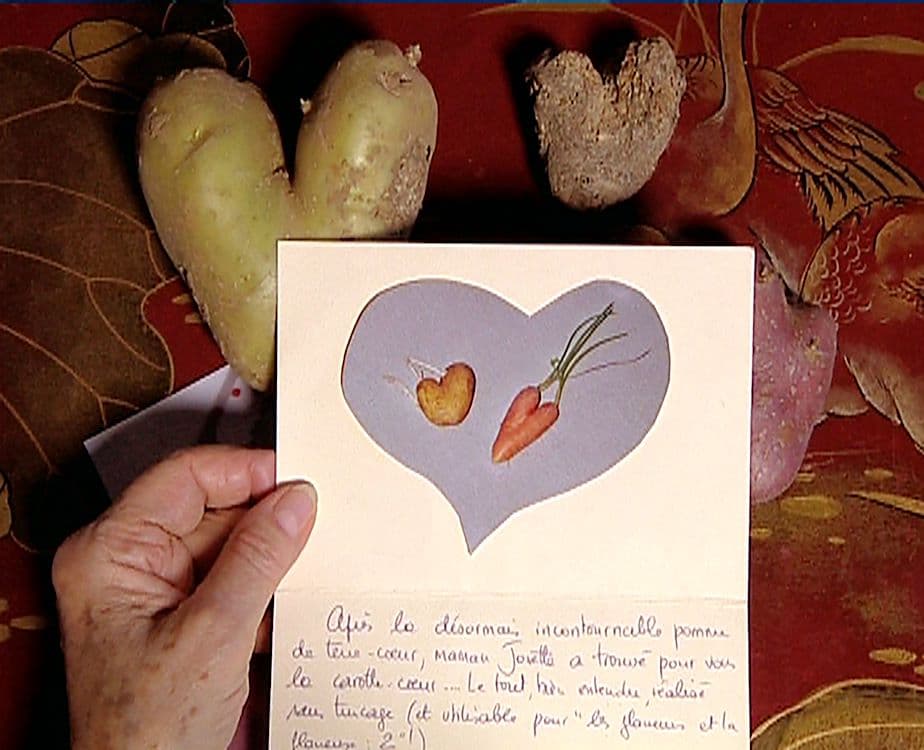 Après la désormais incontournable pomme
de terre-cœur, maman Joëlle a trouvé pour vous
la carotte-cœur .... Le tout, bien entendu, réalisé
sans trucage (et utilisable pour "les glaneurs et la
glaneuse : 2"!)